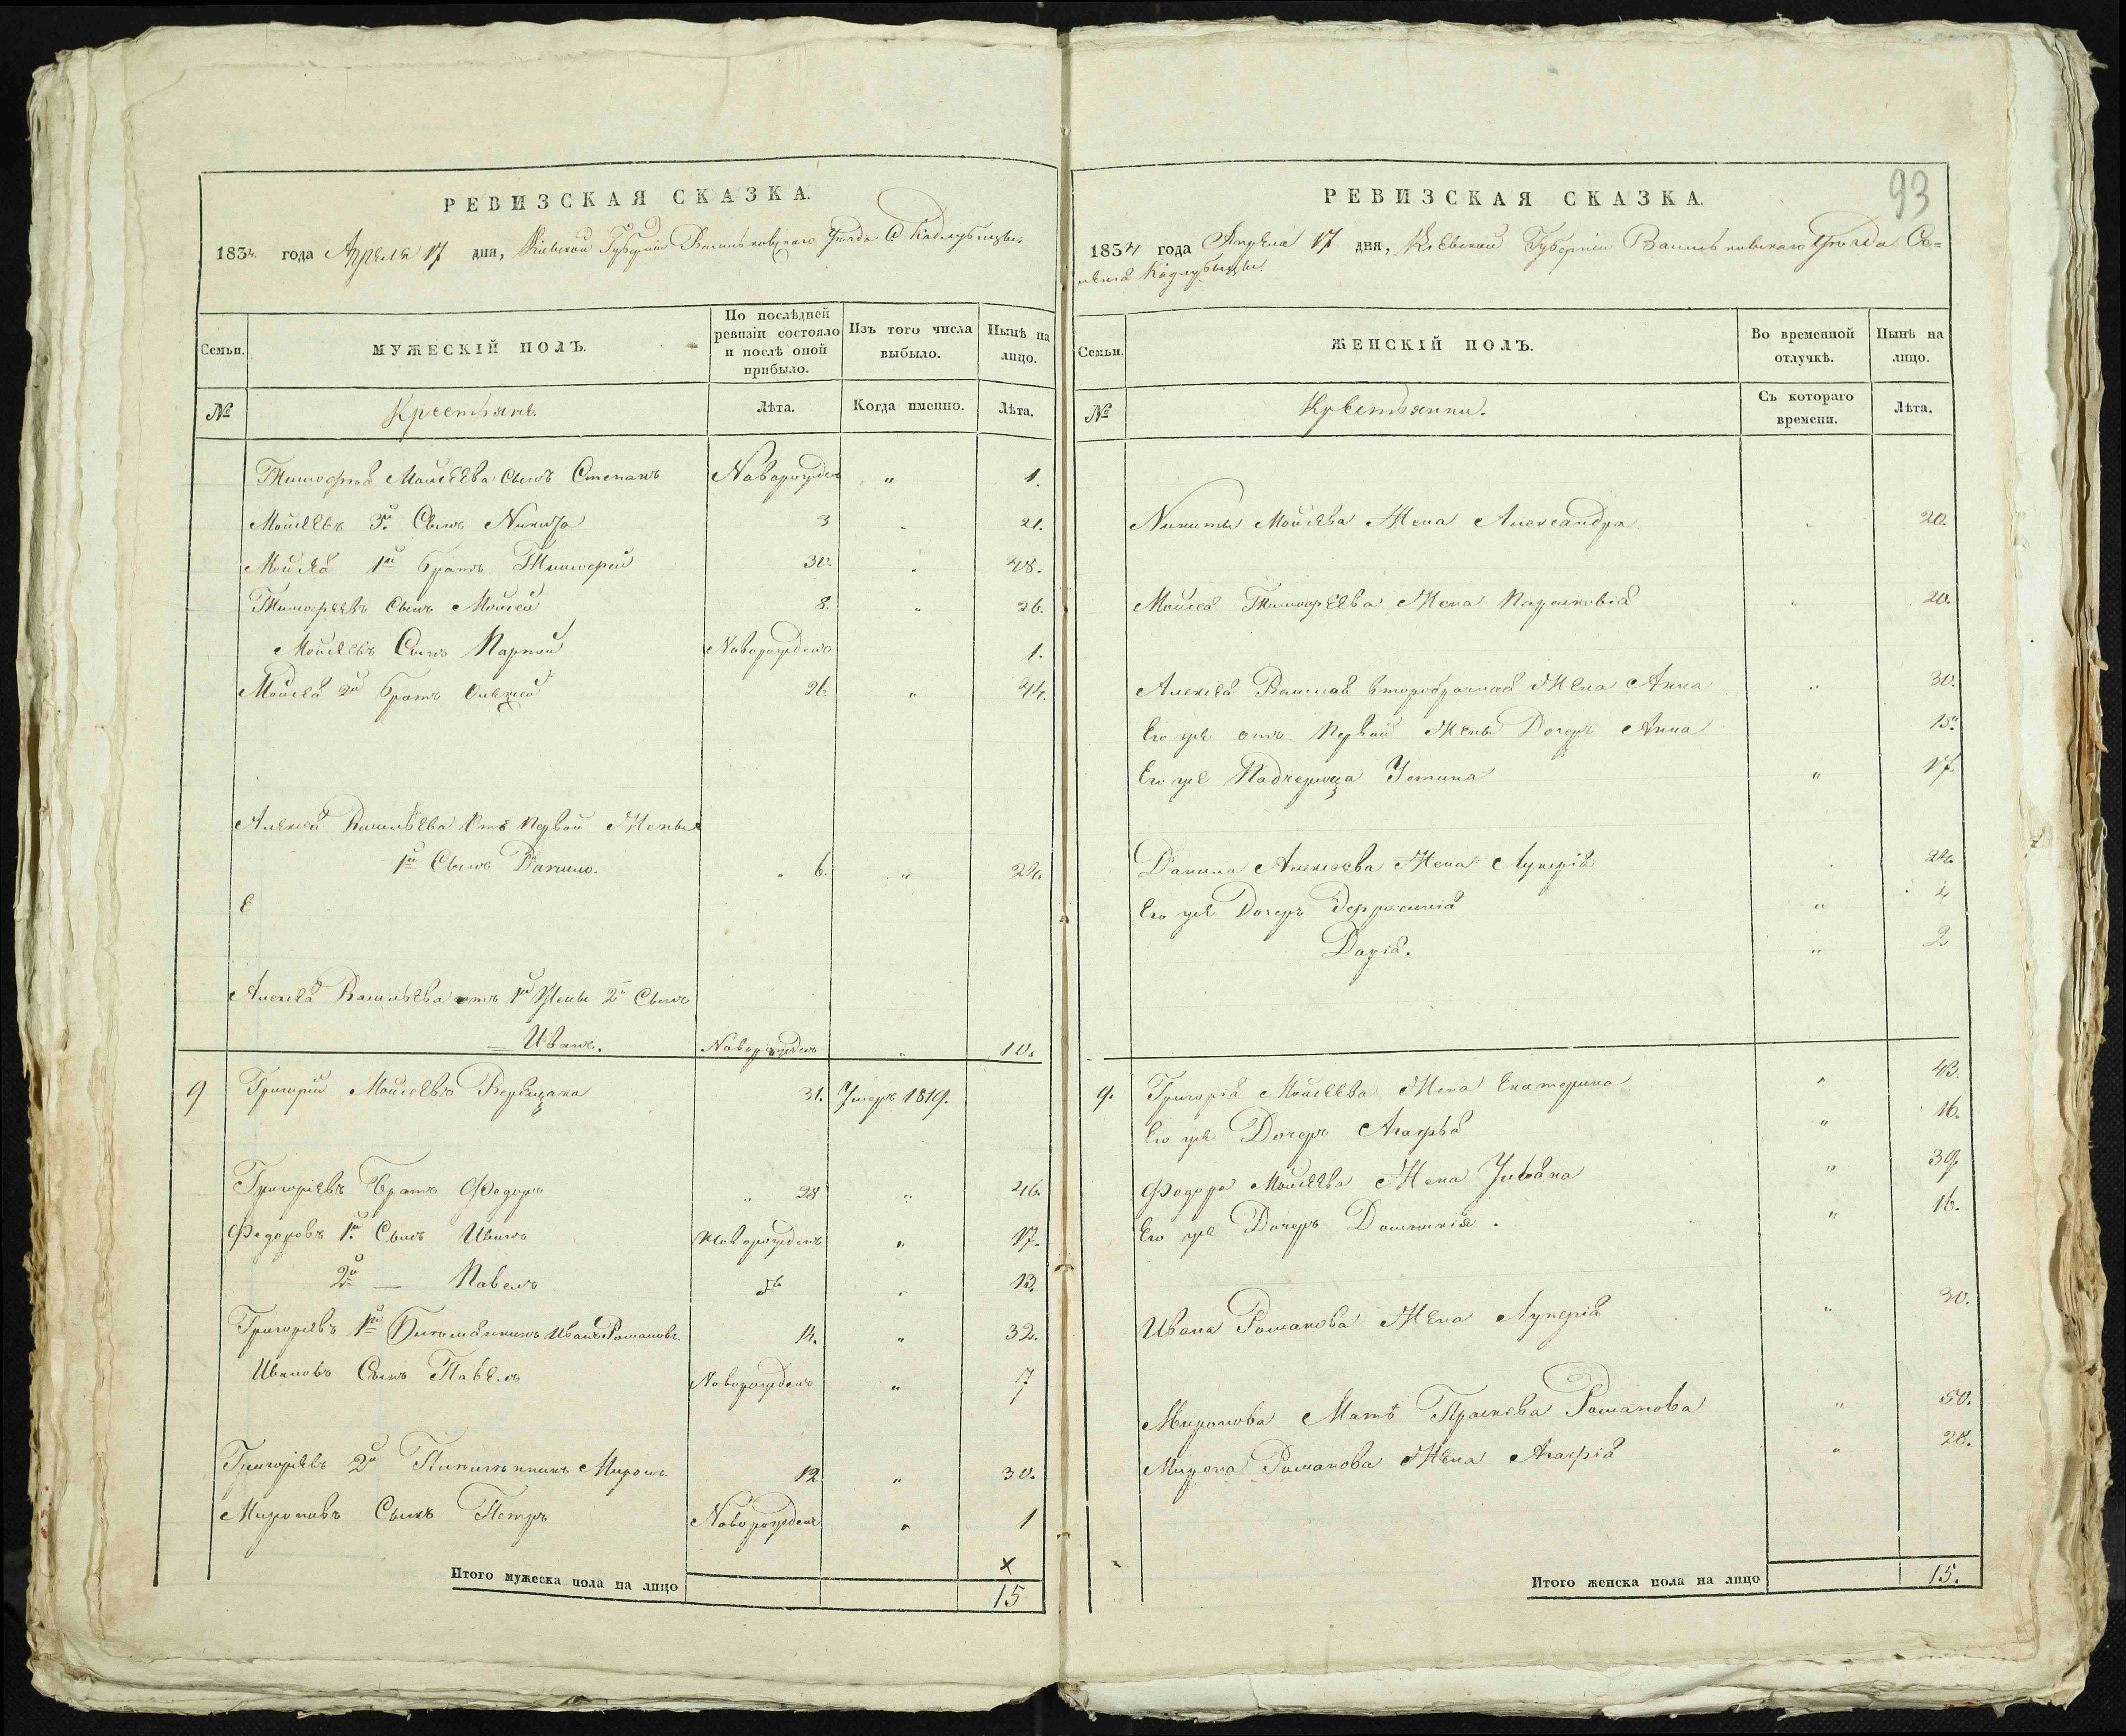 РЕВИЗСКАЯ СКАЗКА.
1834. года Апреля 17 дня, Кіевской Губерніи Васильковскаго Уезда С Кадлубыцы.
Семьи.
МУЖЕСКІЙ ПОЛЪ.
По послѣдней ревизіи состояло и послѣ оной прибыло.
Изъ того числа выбыло.
Нынѣ на лицо.
№
Крестьяне.
Лѣта.
Когда именно.
Лѣта.
Тимофея Моисеева сынъ Степанъ Новорожден " 1.
Моисеевъ 3й Сынъ Никита 3 " 21.
Моисея 1й братъ Тимофей 30. " 48.
Тимофеевъ Сынъ Моисей 8. " 26.
Моисеевъ Сынъ Новорожденъ 1.
Моисея 2й братъ Алексей 26. " 44.
Алексея Васильева Отъ Первой Жены
1й Сынъ Данило. " 6. " 24.
Е
Алексея Васильева отъ 1й Жены 2й Сынъ
Иванъ. Новорожденъ " 10.
9 Григорій Моисеевъ Верещака 31. Умеръ 1819.
Григоріевъ Братъ Федоръ " 28 " 46.
Федоровъ 1й Сынъ Иванъ Новорожденъ " 17.
2й — Павелъ " 13.
Григоріевъ 1й Иванъ Романовъ 14. " 32.
Ивановъ Сынъ Павелъ Новорожденъ " 7
Григоріевъ 2й Миронъ 12 " 30.
Мироновъ Сынъ Петръ Новорожденъ " 1
х
Итого мужеска пола на лицо 15
93
РЕВИЗСКАЯ СКАЗКА.
1834 года Апреля 17 дня, Кіевской Губерніи Васильковскаго Уезда Се=
ленія Кадлубыцы.
Семьи.
ЖЕНСКІЙ ПОЛЪ.
Во временной отлучкѣ.
Нынѣ на лицо.
№
Крестьянки.
Съ котораго времени.
Лѣта.
Никиты Моисеева Жена Александра " 20.
Моисея Тимофеева Жена Парасковія " 20.
Алексея Васильева второбрачная Жена Анна " 30.
Его же отъ Первой Жены Дочерь Анна 15.
Его же Падчерица Устина " 17.
Данила Алексеева Жена Лукерія 24
Его же Дочерь Ефросинія " 4
Дарія. " 2.
9. Григорія Моисеева Жена Екатерина " 43.
Его же Дочерь Агафья " 16.
Федора Моисеева Жена Ульяна " 39.
Его же Дочерь Домникія. " 16.
Ивана Романова Жена Лукерія " 30.
Миронова Мать Праскева Романова " 50.
Мирона Романова Жена Агафія " 28.
Итого женска пола на лицо 15.